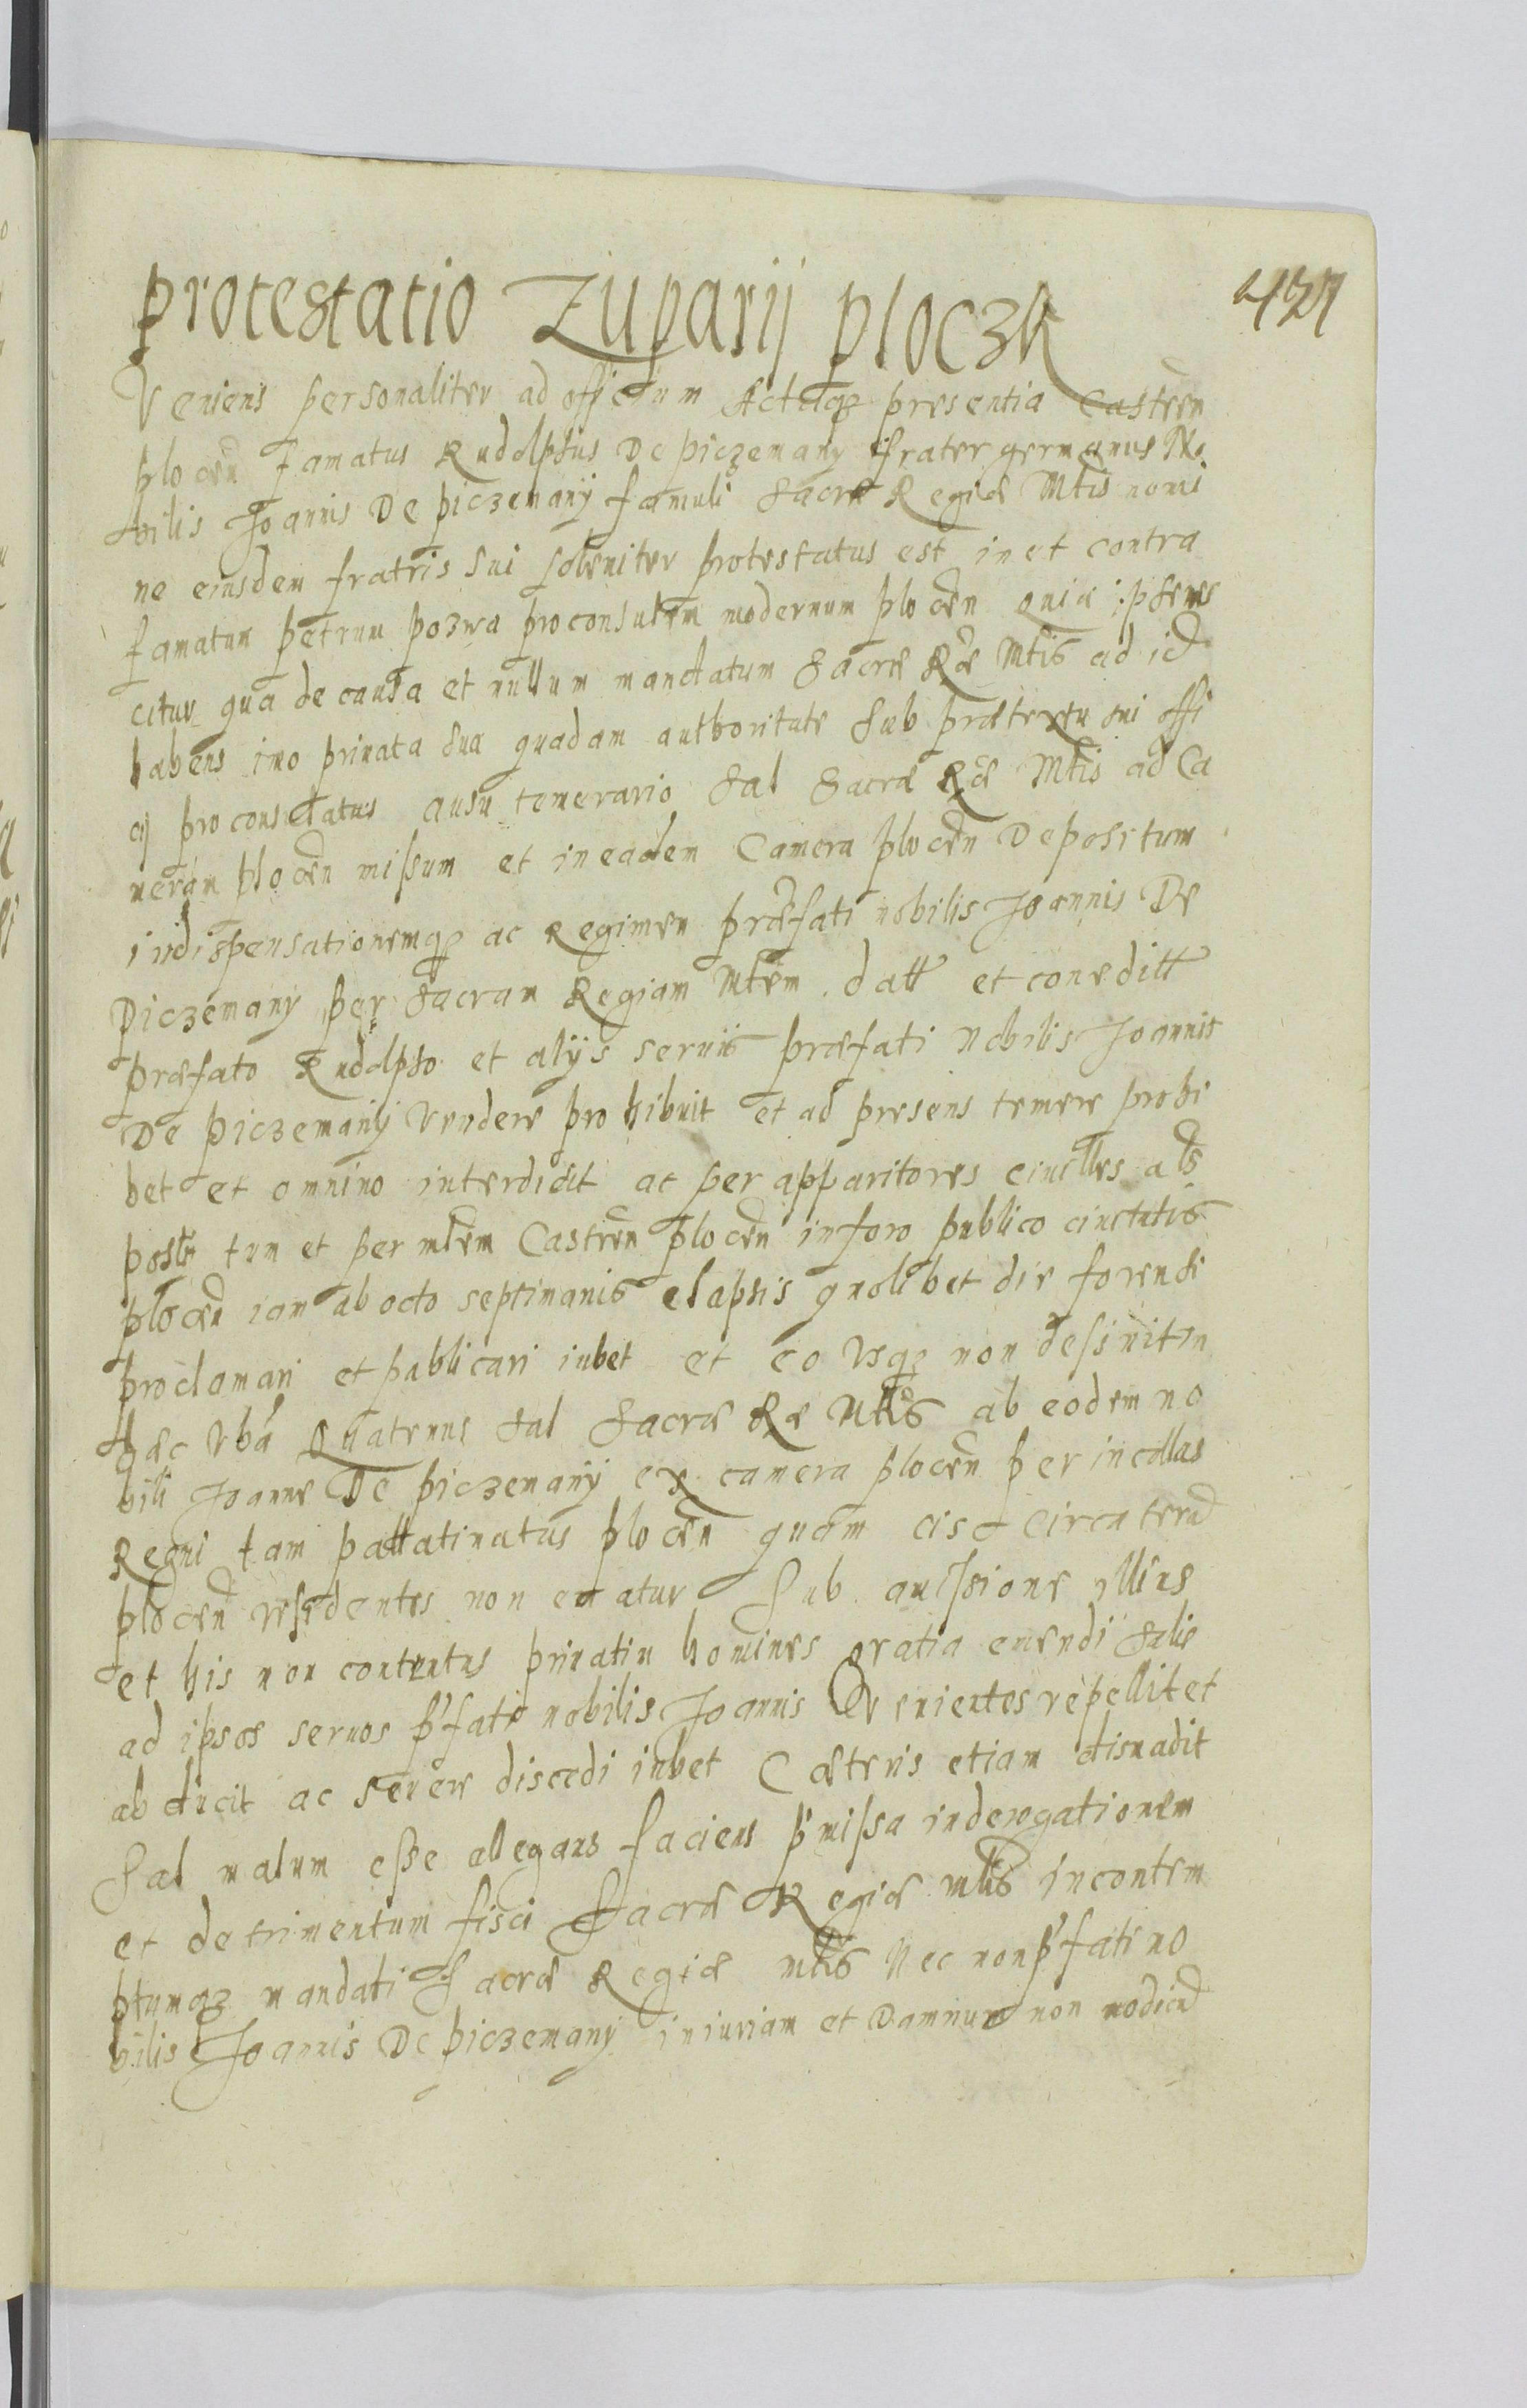 Protestatio Zuparij Ploczk
Veniens personaliter ad officium Actaqz presentia Castren
Plocen famatus Rudolphus De Piczemany frater germanus No
bilis Joannis De Piczemanÿ famuli Sacræ Regiæ Mtis nomi
ne eiusdem fratris sui soleniter protestatus est in et contra
famatum Petrum Pozwa proconsulem modernum Plocen quia ipse
citur qua de causa et nullum mandatum Sacræ Ræ Mtis ad id
habens imo priuata sua quadam authoritate Sub prætextu sui offi
cij proconsulatus ausu temerario Sal Sacræ Ræ Mtis ad Ca
meram Plocen missum et in eadem Camera Plocen Depositum
in dispensationemqz ac Regimen præfati nobilis Joannis De
Piczemany per Sacram Regiam Mtem datt et conceditt
præfato Rudolpho et alijs seruis præfati Nobilis Joannis
De Piczemanÿ vendere prohibuit et ad presens temere prohi
bet et omnino interdicit ac per apparitores ciuiles als
tum et per mtem Castren Plocen in foro publico ciuitatis
Plocen iam ab octo septimanis elapsis quolibet die forensi
proclamari et publicari iubet et eo vsqz non desinit in
hac vba Quatenus Sal Sacræ Ræ Mtis ab eodem no
bili Joanne De Piczemanÿ ex camera Plocen per incollas
Regni tam pallatinatus Plocen quam cis et circa terra
Plocen residentes non ematur Sub amissione illius
et his non contentus priuatim homines gratia emendi salis
ad ipsos seruos p'fati nobilis Joannis Uenientes repellit et
abducit ac seuere discedi iubet Cæteris etiam disuadit
Sal malum esse allegans faciens p'missa in derogationem
et detrimentum fisci Sacræ Regiæ Mtis in contem
ptumqz mandati Sacræ Regiæ Mtis Nec non p'fati no
bilis Joannis De Piczemany iniuriam et Damnum non modicu